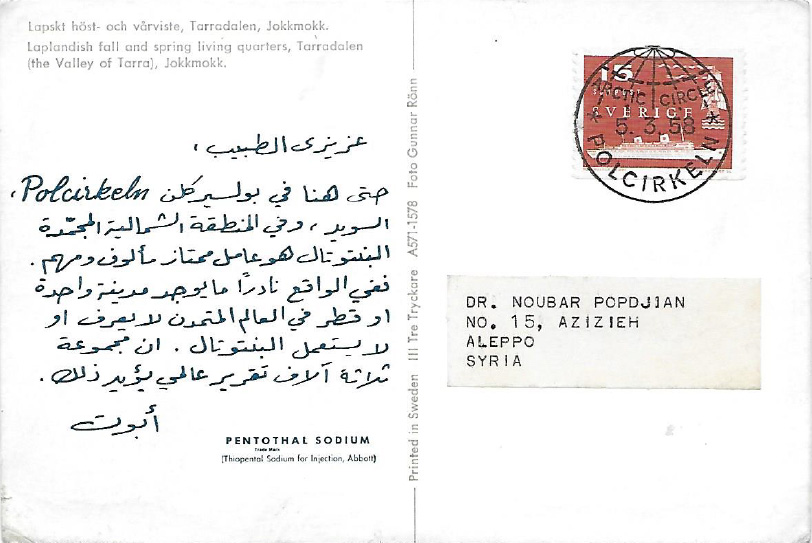 Lapskt höst- och vårviste, Tarradalen, Jokkmokk.
Laplandish fall and spring living quarters, Tarradalen
(the Valley of Tarra), Jokkmokk.
عزيزي الطبيب ،
حتى هنا في بولسيركلن Polcirkeln ،
السويد ، وفي المنطقة الشمالية المجمّدة
البنتوتال هو عامل ممتاز مألوف ومهم .
ففي الواقع نادرًا ما يوجد مدينة واحدة
او قطر في العالم المتمدن لا يعرف او
لا يستعمل البنتوتال . ان مجموعة
ثلاثة آلاف تقرير عالمي يؤيد ذلك .
أبوت
PENTOTHAL SODIUM
Trade Mark
(Thiopental Sodium for Injection, Abbott)
Printed in Sweden III Tre Tryckare A571-1578 Foto Gunnar Rönn
15
SVERIGE
ARCTIC CIRCLE
5.3.58
POLCIRKELN
DR. NOUBAR POPDJIAN
NO. 15, AZIZIEH
ALEPPO
SYRIA